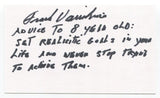 ADVICE TO 8 YEAR OLD:
SET REALISTIC GOALS IN YOUR
LIFE AND NEVER STOP TRYING
TO ACHIEVE THEM.